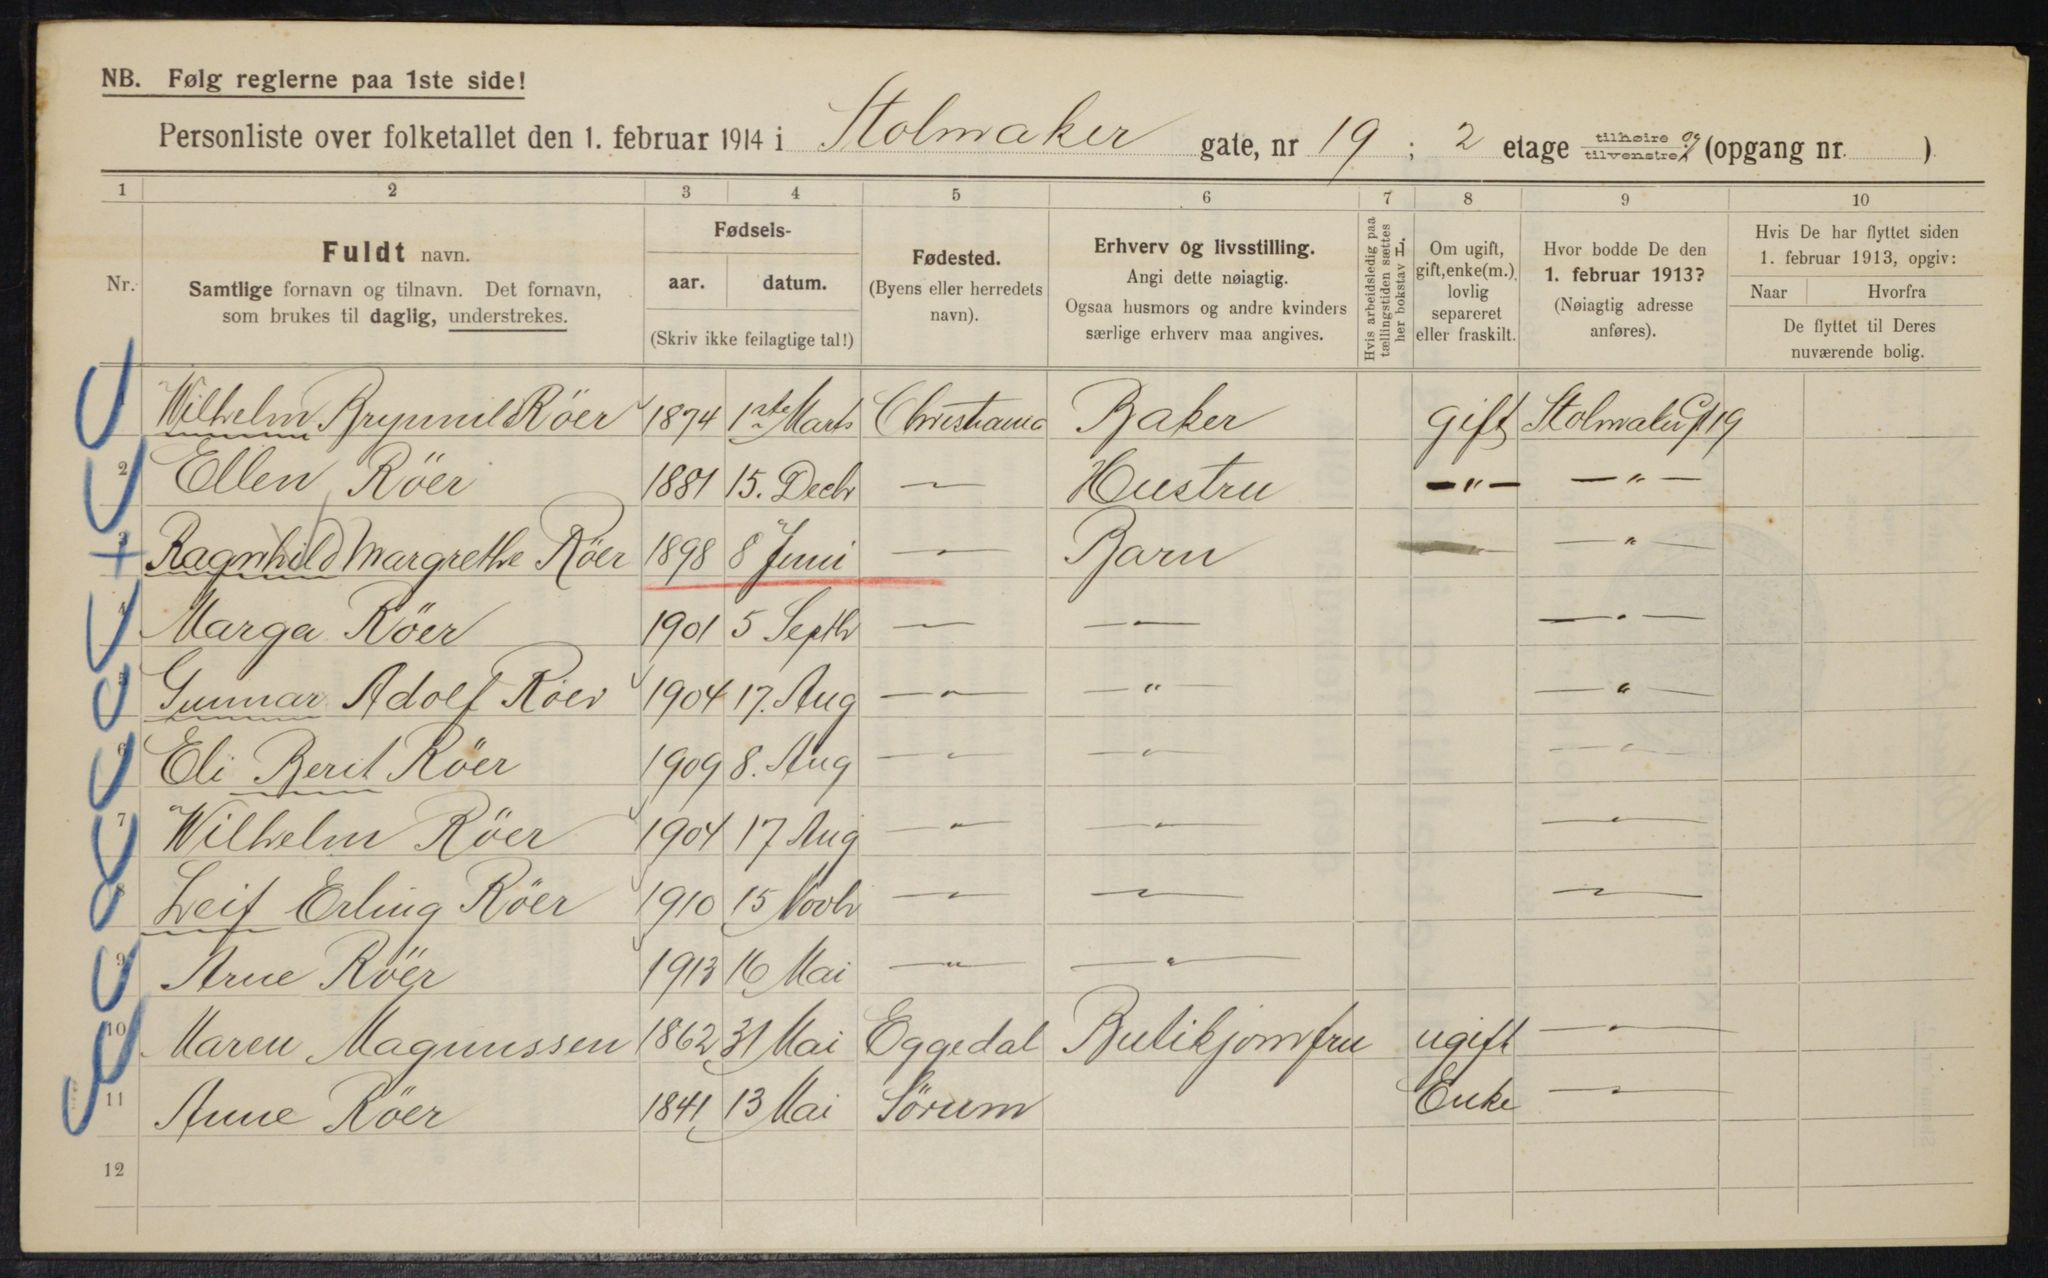 NB. Følg reglerne paa 1ste side!
Personliste over folketallet den 1. februar 1914 i Stolmaker gate, nr 19 ; 2 etage tilhøire og tilvenstre (opgang nr. )
1 2 3 4 5 6 7 8 9 10
Nr.
Fuldt navn.
Samtlige fornavn og tilnavn. Det fornavn,
som brukes til daglig, understrekes.
Fødsels-
aar. datum.
(Skriv ikke feilagtige tal!)
Fødested.
(Byens eller herredets
navn).
Erhverv og livsstilling.
Angi dette nøiagtig.
Ogsaa husmors og andre kvinders
særlige erhverv maa angives.
Hvis arbeidsledig paa
tællingstiden sættes
her bokstav L.
Om ugift,
gift, enke(m.),
lovlig
separeret
eller fraskilt.
Hvor bodde De den
1. februar 1913?
(Nøiagtig adresse
anføres).
Hvis De har flyttet siden
1. februar 1913, opgiv:
Naar Hvorfra
De flyttet til Deres
nuværende bolig.
Wilhelm Brynnild Röer 1874 1ste Marts Christiania Baker gift Stolmakergt 19
2 Ellen Röer 1881 15. Decbr —"— Hustru —"— —"—
3 Ragnhild Margrethe Röer 1898 8 Juni —"— Barn —"—
4 Marga Röer 1901 5 Septbr —"— —"— —"—
5 Gunnar Adolf Röer 1904 17. Aug —"— —"— —"—
6 Eli Berit Röer 1909 8. Aug —"— —"— —"—
7 Wilhelm Röer 1904 17 Aug —"— —"— —"—
8 Leif Erling Röer 1910 15 Novbr —"— —"— —"—
9 Arne Röer 1913 16 Mai —"— —"—
10 Maren Magnussen 1862 31 Mai Eggedal Butikjomfru ugift —"—
11 Anne Röer 1841 13 Mai Sörum Enke —"—
12